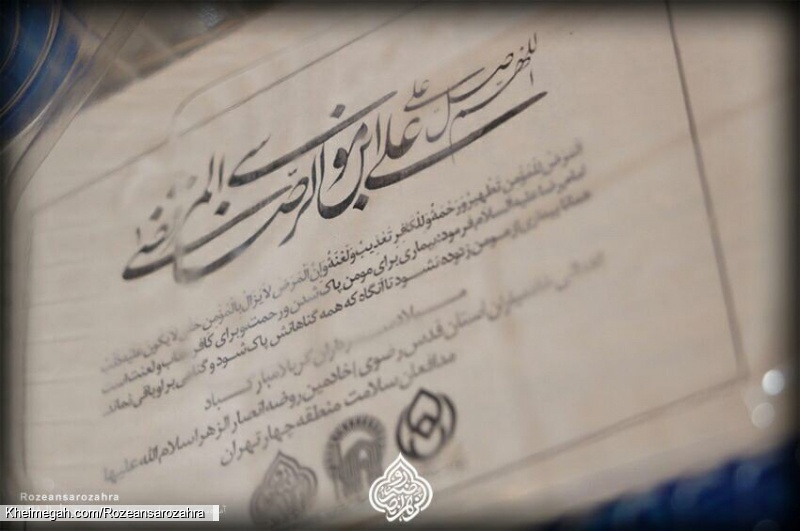 اللهم صل علی
علی ابن موسی الرضا المرتضی
المرض للمؤمن تطهیر و رحمة و للکافر تعذیب و لعنة و ان المرض لا یزال بالمؤمن حتی لا یکون علیه
امام رضا علیه السلام فرمود: بیماری برای مومن پاک شدن و رحمت و برای کافر عذاب و لعنت است
همانا بیماری از مومن زدوده نشود تا آنگاه که همه گناهانش پاک شود و گناهی بر او باقی نماند
میلاد سرداران کربلا مبارک باد
استان قدس رضوی | خادمین روضه انصار الزهرا سلام الله علیها
مدافعان سلامت منطقه چهار تهران
Rozeansarozahra
Kheimegah.com/Rozeansarozahra